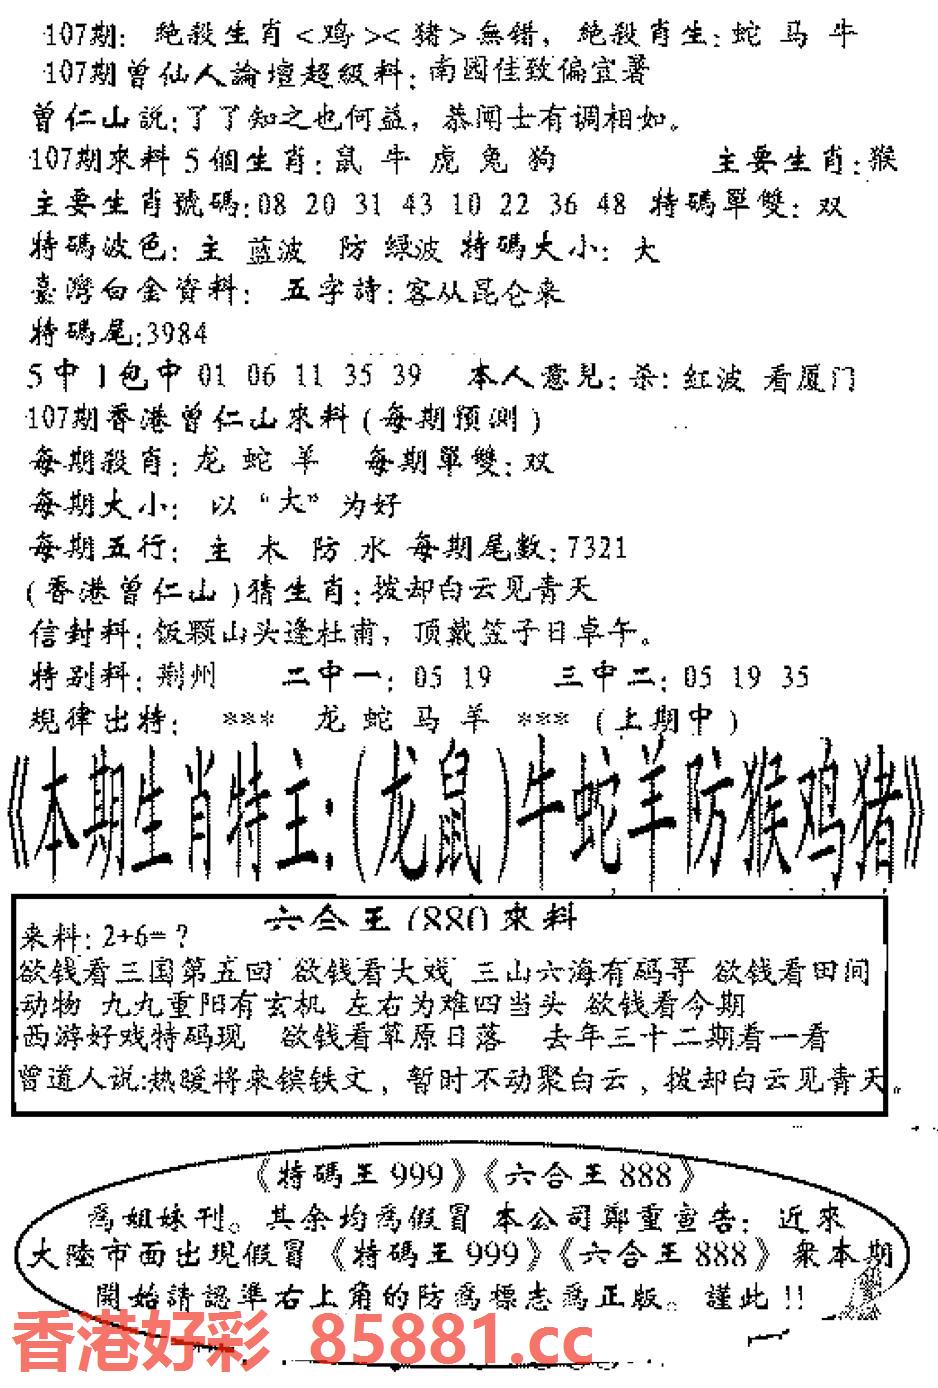 107期: 絶殺生肖<鸡><猪>無错, 絶殺肖生: 蛇 马 牛
107期曾仙人論壇超級料: 南园佳致偏宜暑
曾仁山説: 了了知之也何益, 恭闻士有调相如。
107期來料 5 個生肖: 鼠 牛 虎 兔 狗 主要生肖: 猴
主要生肖號碼: 08 20 31 43 10 22 36 48 特碼單雙: 双
特碼波色: 主 蓝波 防 绿波 特碼大小: 大
臺灣白金資料: 五字詩: 客从昆仑来
特碼尾: 3984
5 中 1 包中 01 06 11 35 39 本人意見: 杀: 红波 看厦门
107期香港曾仁山來料 (每期預測)
每期殺肖: 龙 蛇 羊 每期單雙: 双
每期大小: 以 “大” 为好
每期五行: 主 木 防 水 每期尾數: 7321
(香港曾仁山) 猜生肖: 拨却白云见青天
信封料: 饭颗山头逢杜甫, 顶戴笠子日卓午。
特别料: 荆州 二中一: 05 19 三中二: 05 19 35
規律出特: *** 龙 蛇 马 羊 *** (上期中)
《本期生肖特主: (龙鼠) 牛蛇羊防猴鸡猪》
六合王 (880) 來料
来料: 2+6= ?
欲钱看三国第五回 欲钱看大戏 三山六海有码寻 欲钱看田间
动物 九九重阳有玄机 左右为难四当头 欲钱看今期
西游好戏特码现 欲钱看草原日落 去年三十二期看一看
曾道人说: 热暖将来镔铁文, 暂时不动聚白云, 拨却白云见青天。
《特碼王 999》《六合王 888》
爲姐妹刊。其余均爲假冒 本公司鄭重宣告: 近來
大陸市面出現假冒《特碼王 999》《六合王 888》衆本期
開始請認準右上角的防爲標志爲正版。謹此 !!
香港好彩 85881.cc